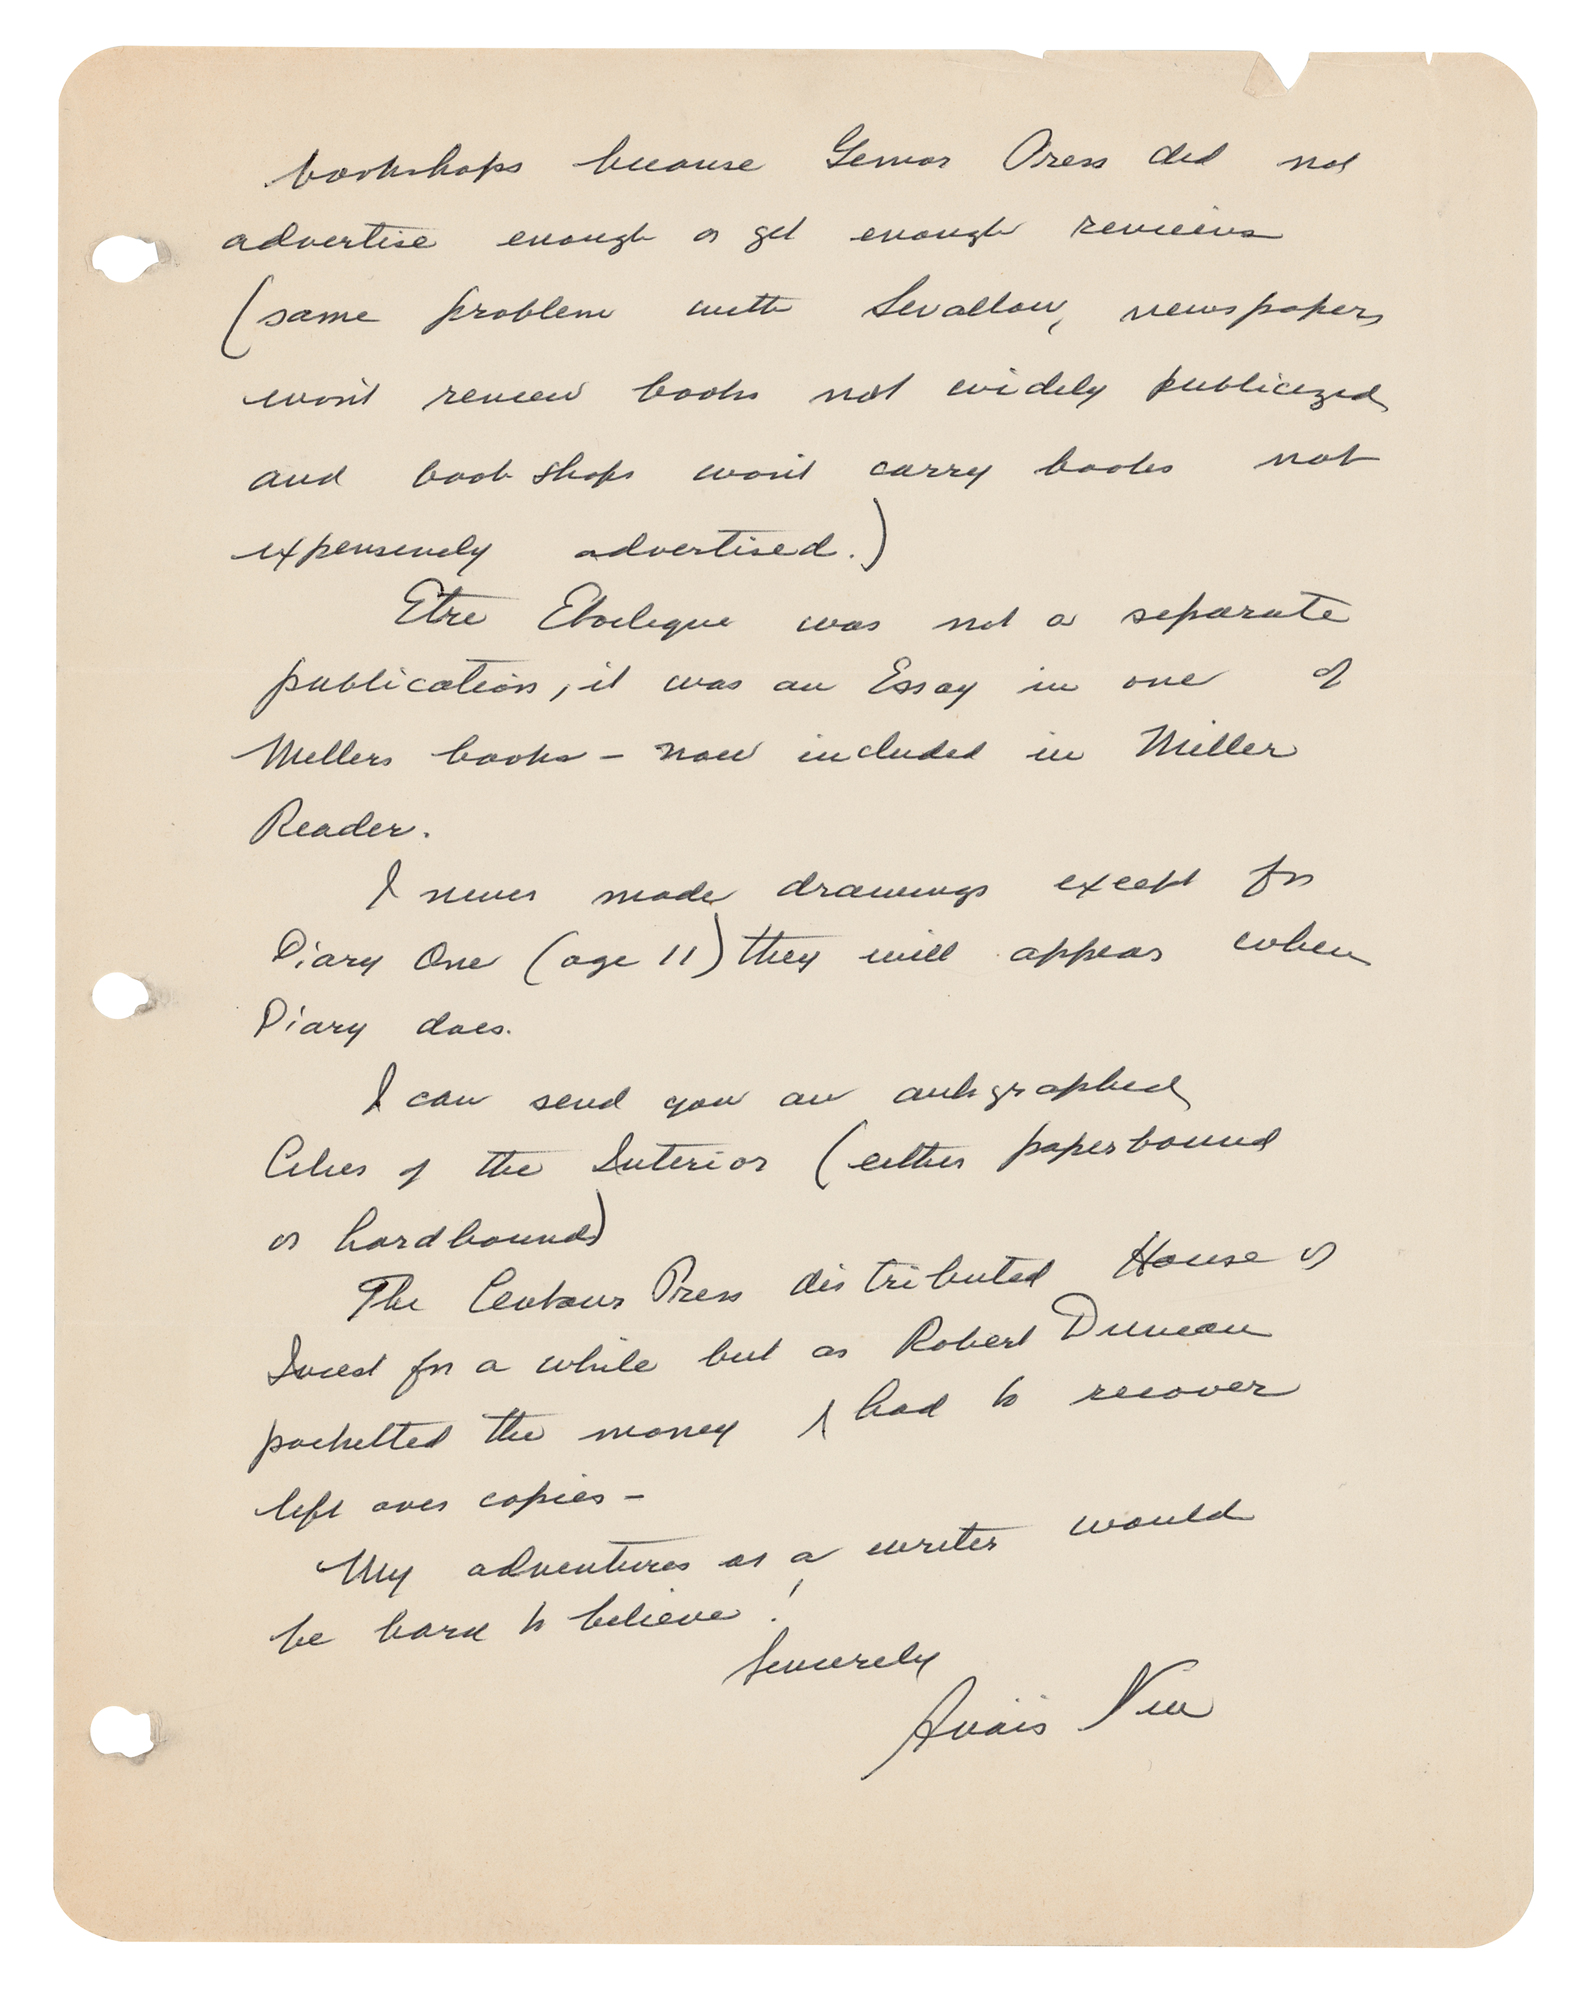 bookshops because Gemor Press did not
advertise enough or get enough reviews
(same problem with Swallow, newspapers
won't review books not widely publicized
and book shops won't carry books not
expensively advertised.)
Etre Etoilique was not a separate
publication, it was an Essay in one of
Millers books – now included in Miller
Reader.
I never made drawings except for
Diary One (age 11) they will appear when
Diary does.
I can send you an autographed
Cities of the Interior (either paperbound
or hardbound)
The Centaur Press distributed House of
Incest for a while but as Robert Duncan
pocketted the money I had to recover
left over copies –
My adventures as a writer would
be hard to believe!
Sincerely
Anaïs Nin